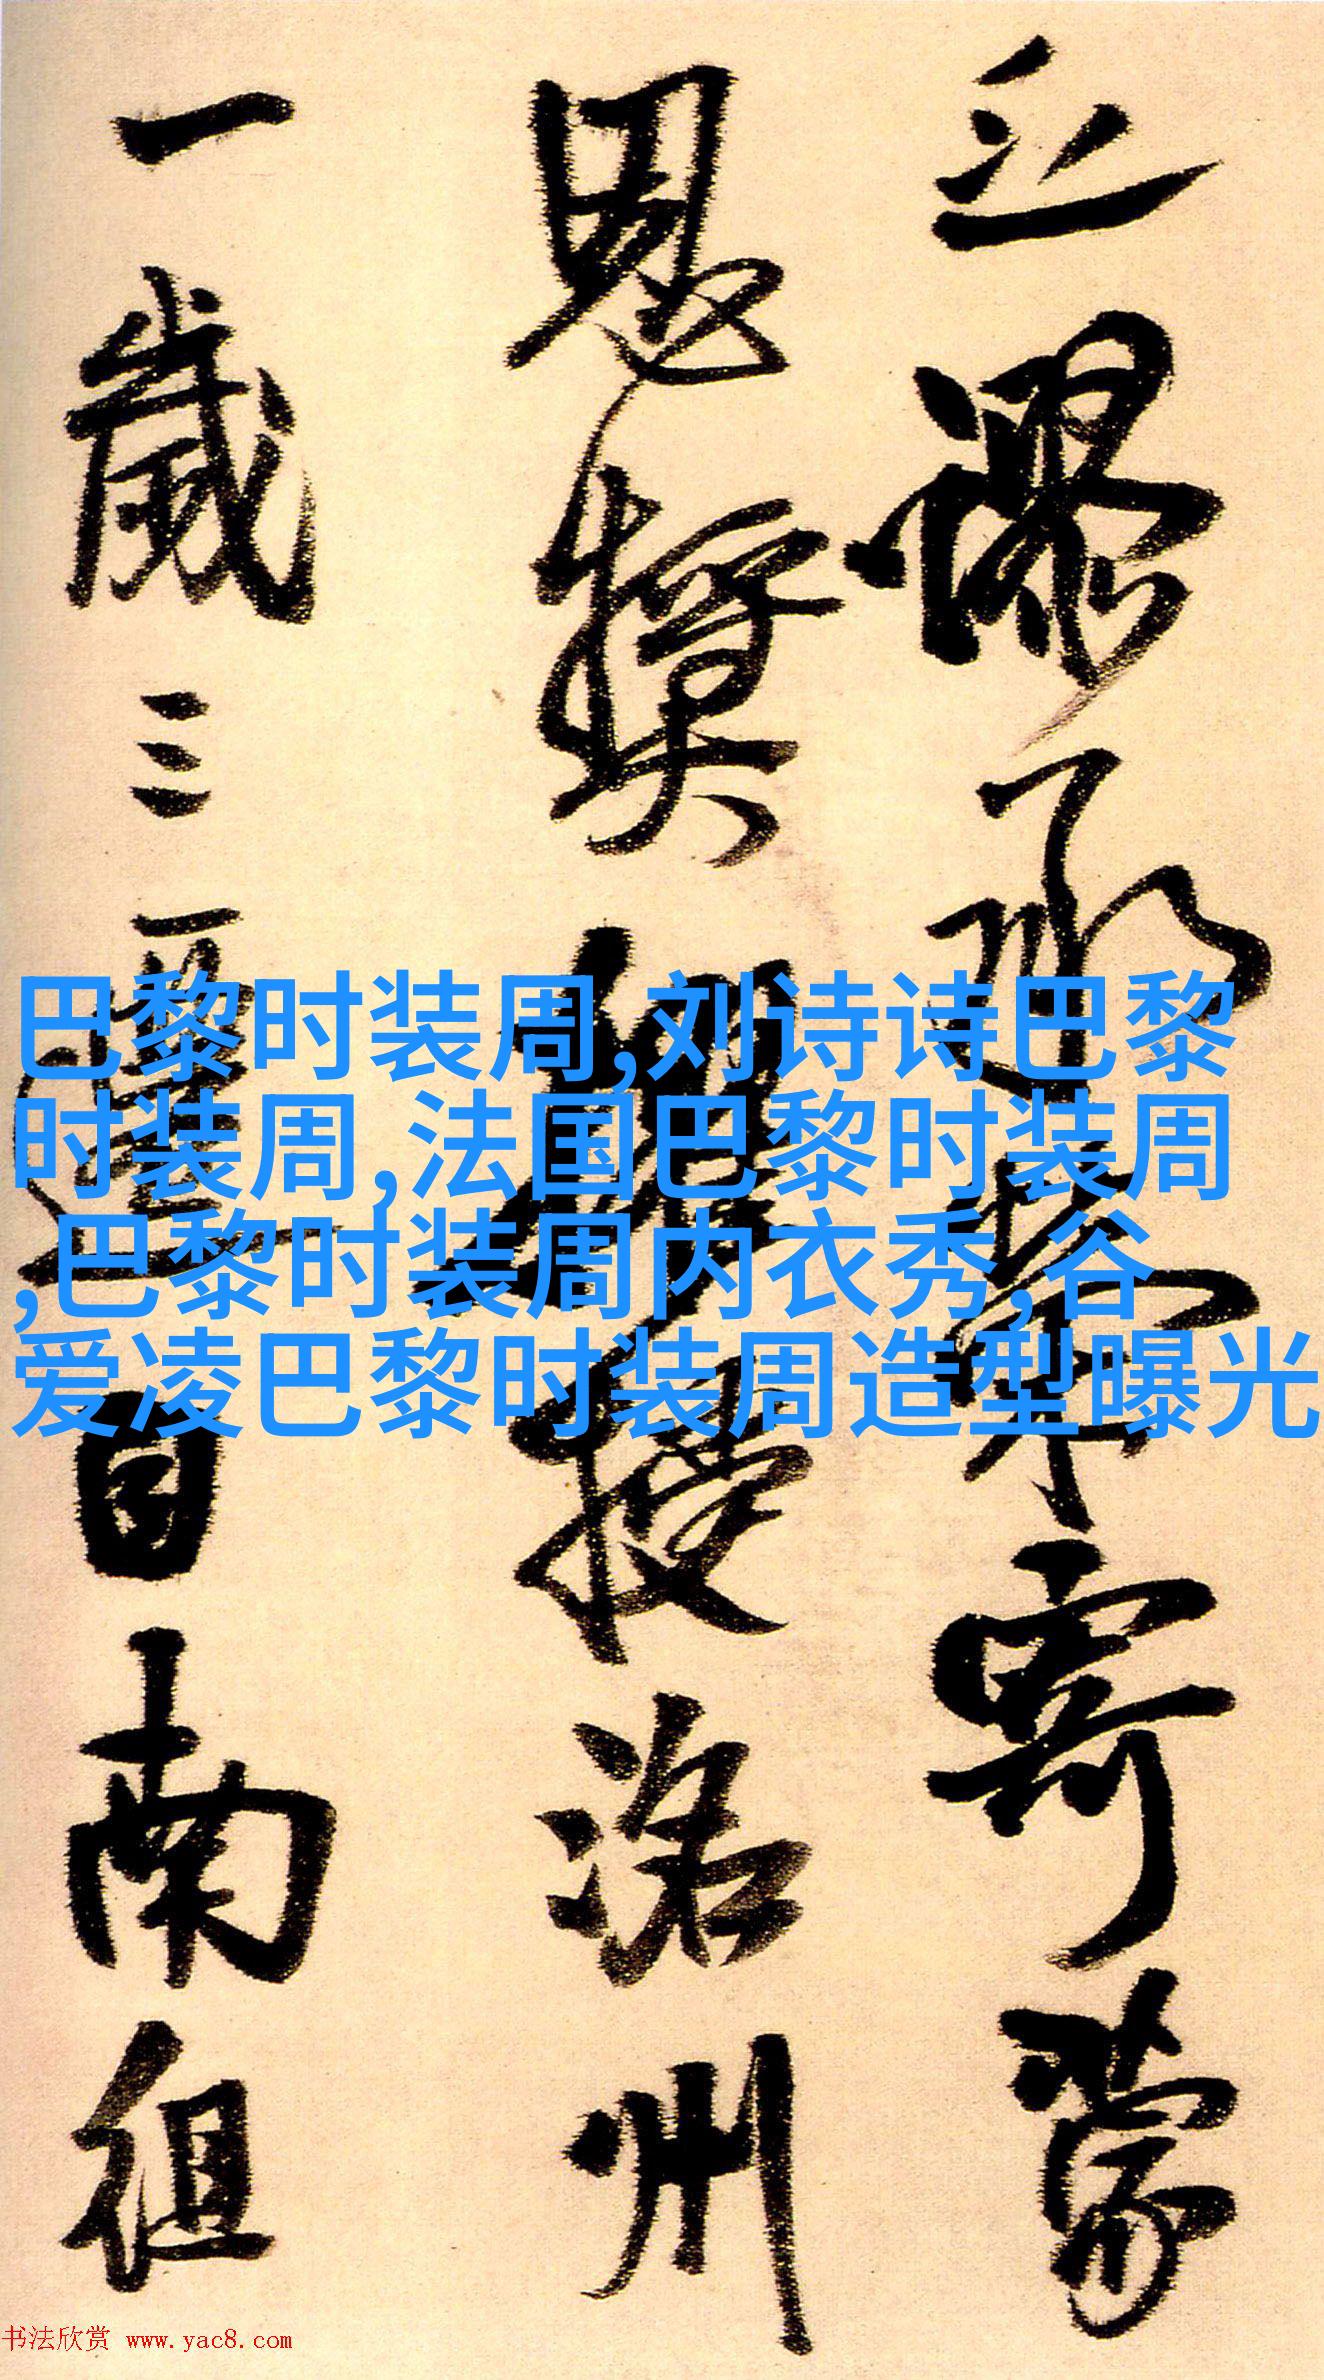 謬承榮寄蒙
恩奬授洛州
一歲三遷自南徂
巴黎时装周,刘诗诗巴黎
时装周,法国巴黎时装周
,巴黎时装周内衣秀,谷
爱凌巴黎时装周造型曝光
书法欣赏 www.yac8.com